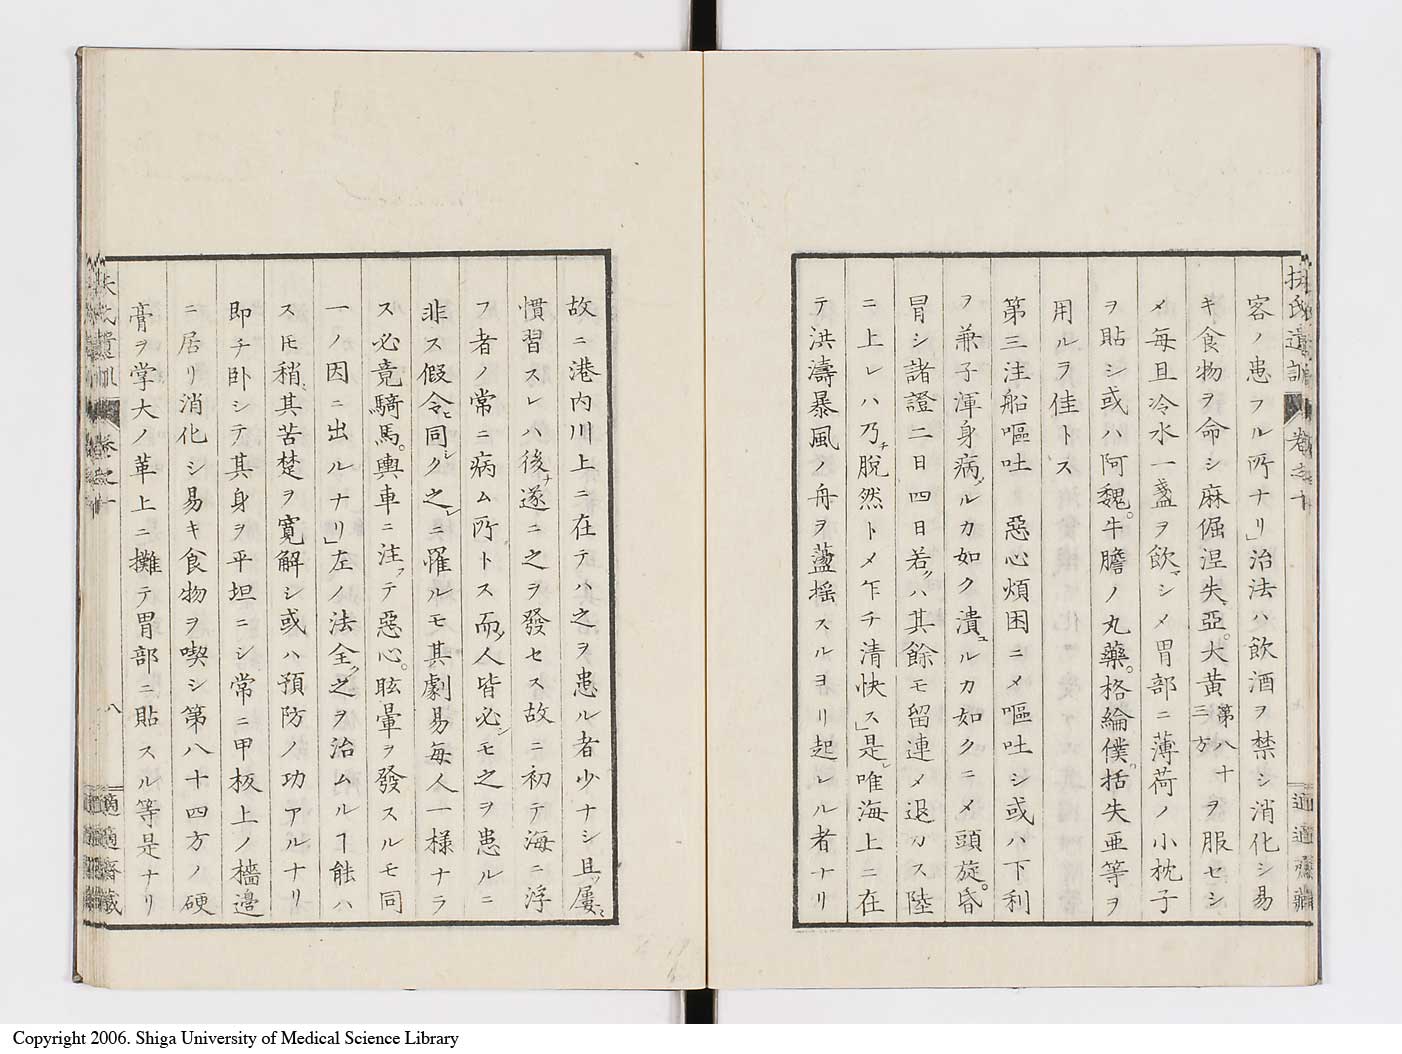 扶氏遺訓 卷之十 適適齋藏
容ノ患フル所ナリ」治法ハ飲酒ヲ禁シ消化シ易
キ食物ヲ命シ麻倔涅失亞。大黄第八十三方ヲ服セシ
メ毎旦冷水一盞ヲ飲マシメ胃部ニ薄荷ノ小枕子
ヲ貼シ或ハ阿魏。牛膽ノ丸藥。格綸僕。括失亜等ヲ
用ルヲ佳トス
第三注船嘔吐 惡心煩困ニメ嘔吐シ或ハ下利
ヲ兼子渾身病ルカ如ク潰ユルカ如クニメ頭旋。昏
冒シ諸證二日四日若ハ其餘モ留連メ退カス陸
ニ上レハ乃チ脫然トメ乍チ清快ス」是レ唯海上ニ在
テ洪濤暴風ノ舟ヲ盪揺スルヨリ起レル者ナリ
故ニ港内川上ニ在テハ之ヲ患ル者少ナシ且ツ屢
慣習スレハ後ナ遂ニ之ヲ發セス故ニ初テ海ニ浮
フ者ノ常ニ病ム所トス而人皆必シモ之ヲ患ルニ
非ス假令ヒ同シク之ニ罹ルモ其劇易毎人一様ナラ
ス必竟騎馬。輿車ニ注テ惡心。眩暈ヲ發スルモ同
一ノ因ニ出ルナリ」左ノ法全ク之ヲ治ムルヿ能ハ
スモ稍其苦楚ヲ寛解シ或ハ預防ノ功アルナリ
即チ卧シテ其身ヲ平坦ニシ常ニ甲板上ノ檣邊
ニ居リ消化シ易キ食物ヲ喫シ第八十四方ノ硬
膏ヲ掌大ノ革上ニ攤テ胃部ニ貼スル等是ナリ
扶氏遺訓 卷之十 八 適適齋藏
Copyright 2006. Shiga University of Medical Science Library